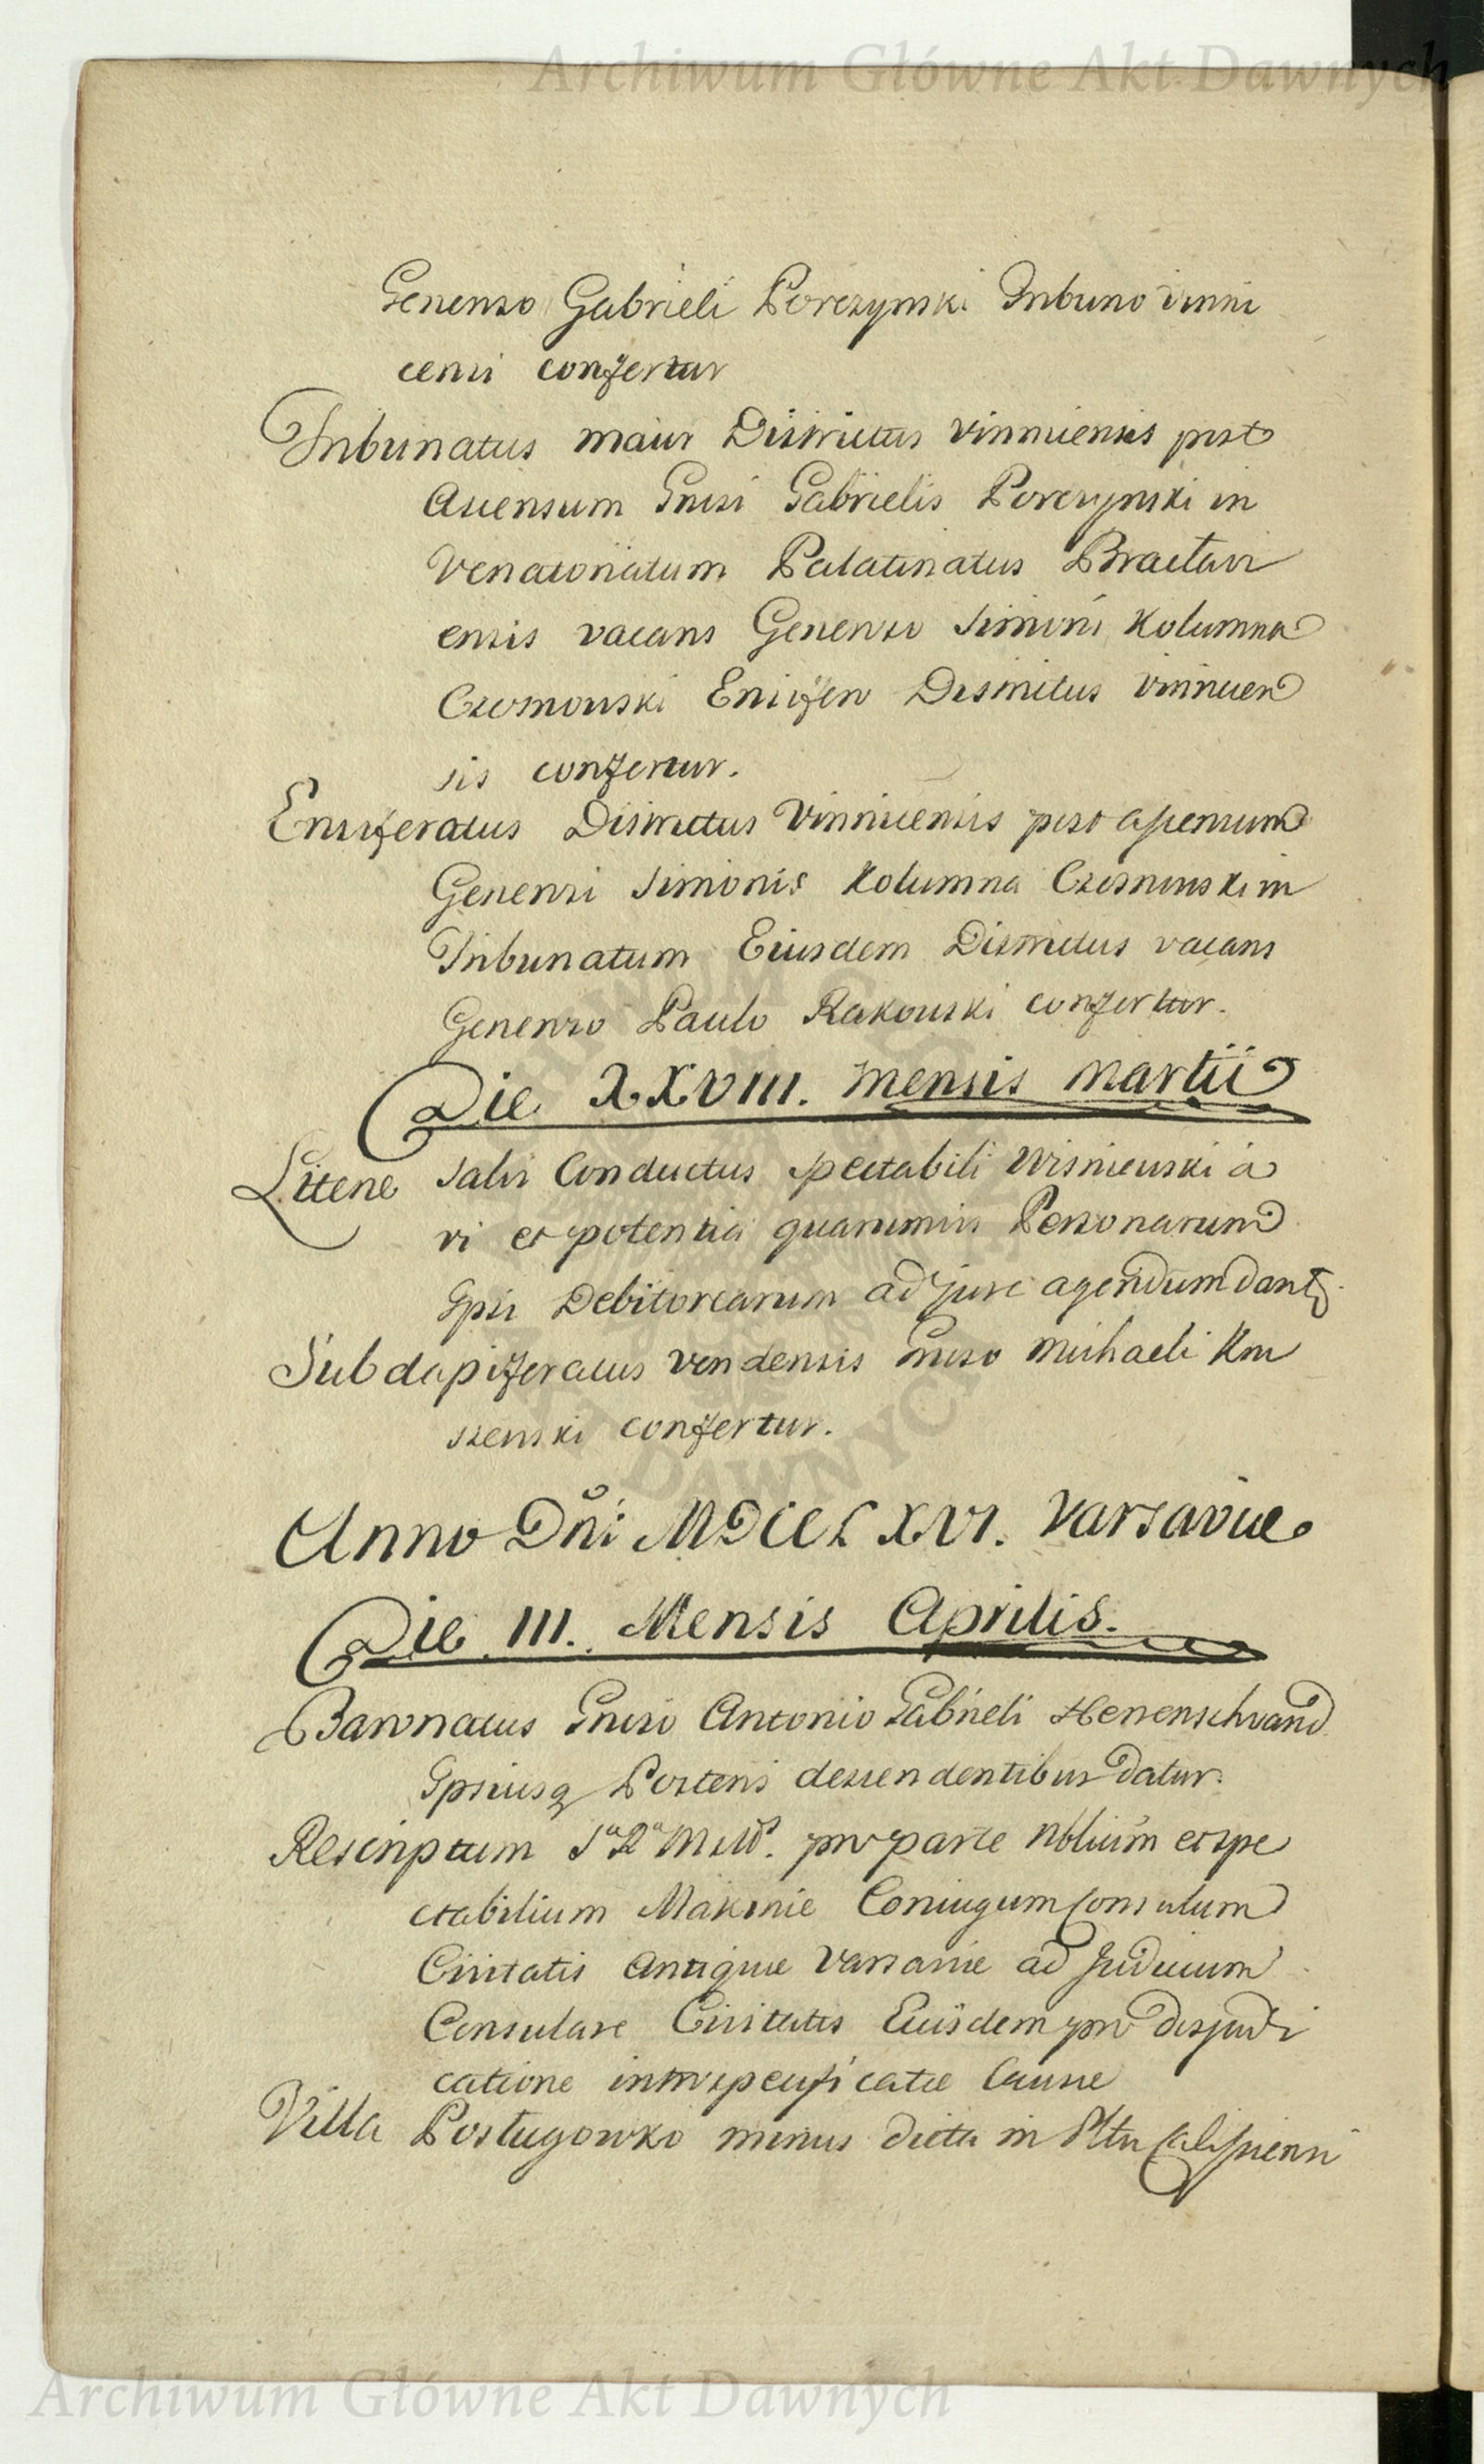 Archiwum Główne Akt Dawnych
Generoso Gabrieli Porczynski Tribuno Vinni
censi confertur
Tribunatus maior Districtus Vinnicensis post
Ascensum Gnrsi Gabrielis Porczynski in
Venatoriatum Palatinatus Braclavi
ensis vacans Generoso Simoni Kolumna
Czosnowski Ensifero Districtus Vinnicen
sis confertur.
Ensiferatus Districtus Vinnicensis post assensum
Generosi Simonis Kolumna Czosnowski in
Tribunatum Eiusdem Districtus vacans
Generoso Paulo Rakowski confertur.
Die XXVIII. Mensis Martii
Litterae Salvi Conductus spectabili Wisniewski a
vi et potentia quarumvis Personarum
Ipsi Debitorearum ad jure agendum dantꝫ
Subdapiferatus Vendensis Gnrso Michaeli Kru
szenski confertur.
Anno Dni MDCCLXVI. Varsaviae
Die III. Mensis Aprilis.
Baronatus Gnrso Antonio Gabrieli Herrenschvand
Ipsiusq Posteris descendentibus datur.
Rescriptum Sᵃ Rᵃ Mttis. pro parte Nblium et spe
ctabilium Makonie Coniugum Consulum
Civitatis Antique Varsavie ad Judicium
Consulare Civitatis Eiusdem pro disjudi
catione introspecificatae Causae
Villa Postugowko minus dicta in Pltu Calissiensi
Archiwum Główne Akt Dawnych